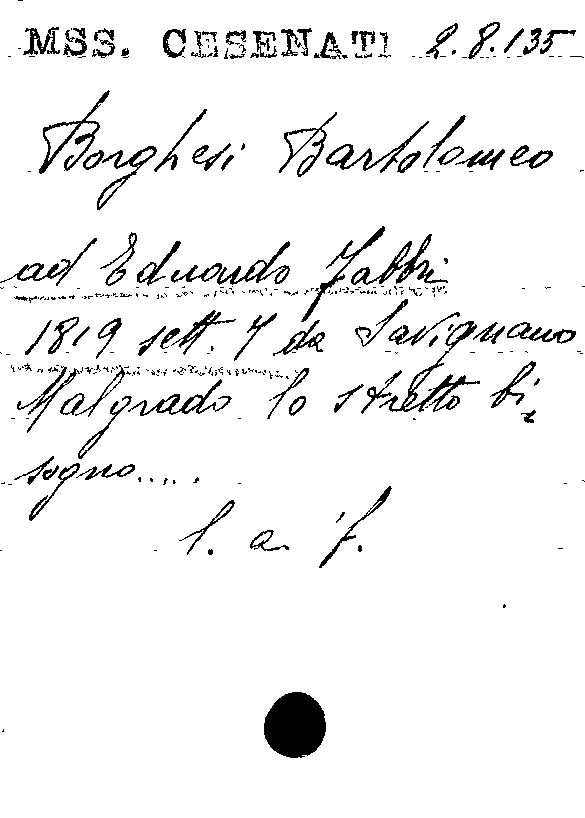 MSS. CESENATI 2.8.135
Borghesi Bartolomeo
ad Eduardo Fabbri
1819 sett. 7 da Savignano
Malgrado lo stretto bi-
sogno.....
l. a. f.